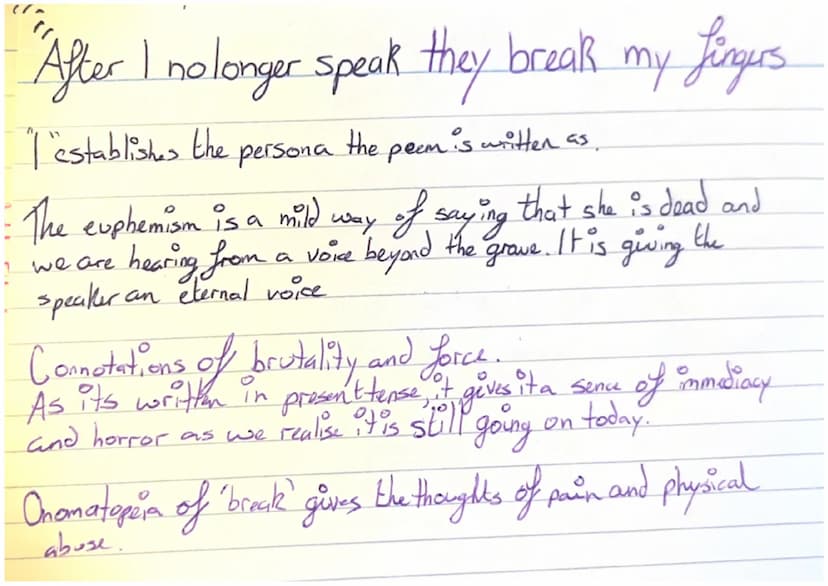 "After I no longer speak they break my fingers
"I" establishes the persona the poem is written as.
The euphemism is a mild way of saying that she is dead and
we are hearing from a voice beyond the grave. It is giving the
speaker an eternal voice
Connotations of brutality and force.
As its written in present tense, it gives it a sence of immediacy
and horror as we realise it is still going on today.
Onomatopeia of 'break' gives the thoughts of pain and physical
abuse.